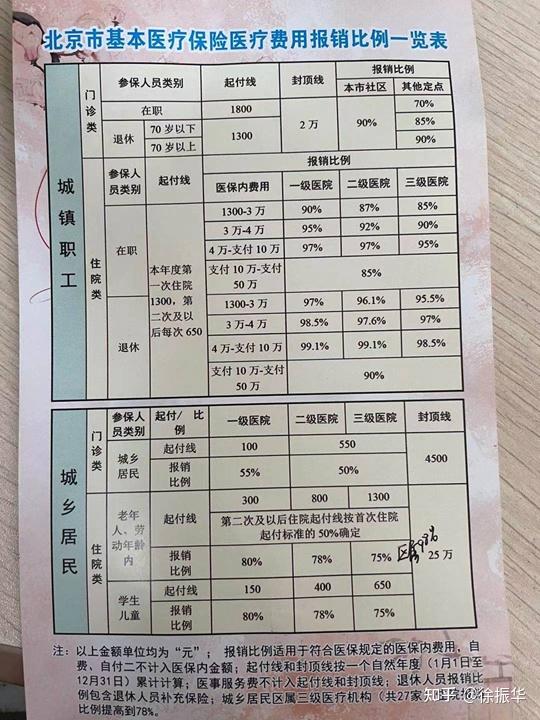 北京市基本医疗保险医疗费用报销比例一览表
城镇职工
门诊类
参保人员类别 起付线 封顶线 报销比例
本市社区 其他定点
在职 1800 2万 90% 70%
退休 70岁以下 1300 85%
70岁以上 90%
住院类
参保人员类别 起付线 报销比例
医保内费用 一级医院 二级医院 三级医院
在职 本年度第一次住院1300,第二次及以后每次650
1300-3万 90% 87% 85%
3万-4万 95% 92% 90%
4万-支付10万 97% 97% 95%
支付10万-支付50万 85%
退休
1300-3万 97% 96.1% 95.5%
3万-4万 98.5% 97.6% 97%
4万-支付10万 99.1% 99.1% 98.5%
支付10万-支付50万 90%
城乡居民
门诊类
参保人员类别 起付/比例 一级医院 二级医院 三级医院 封顶线
城乡居民 起付线 100 550 4500
报销比例 55% 50%
住院类
老年人、劳动年龄内 起付线 300 800 1300 25万
第二次及以后住院起付线按首次住院起付标准的50%确定
报销比例 80% 78% 75%
学生儿童 起付线 150 400 650
报销比例 80% 78% 75%
注:以上金额单位均为“元”; 报销比例适用于符合医保规定的医保内费用,自
费、自付二不计入医保内金额;起付线和封顶线按一个自然年度(1月1日至
12月31日)累计计算;医事服务费不计入起付线和封顶线;退休人员报销比
例包含退休人员补充保险;城乡居民区属三级医疗机构(共27家
比例提高到78%。
知乎 @徐振华